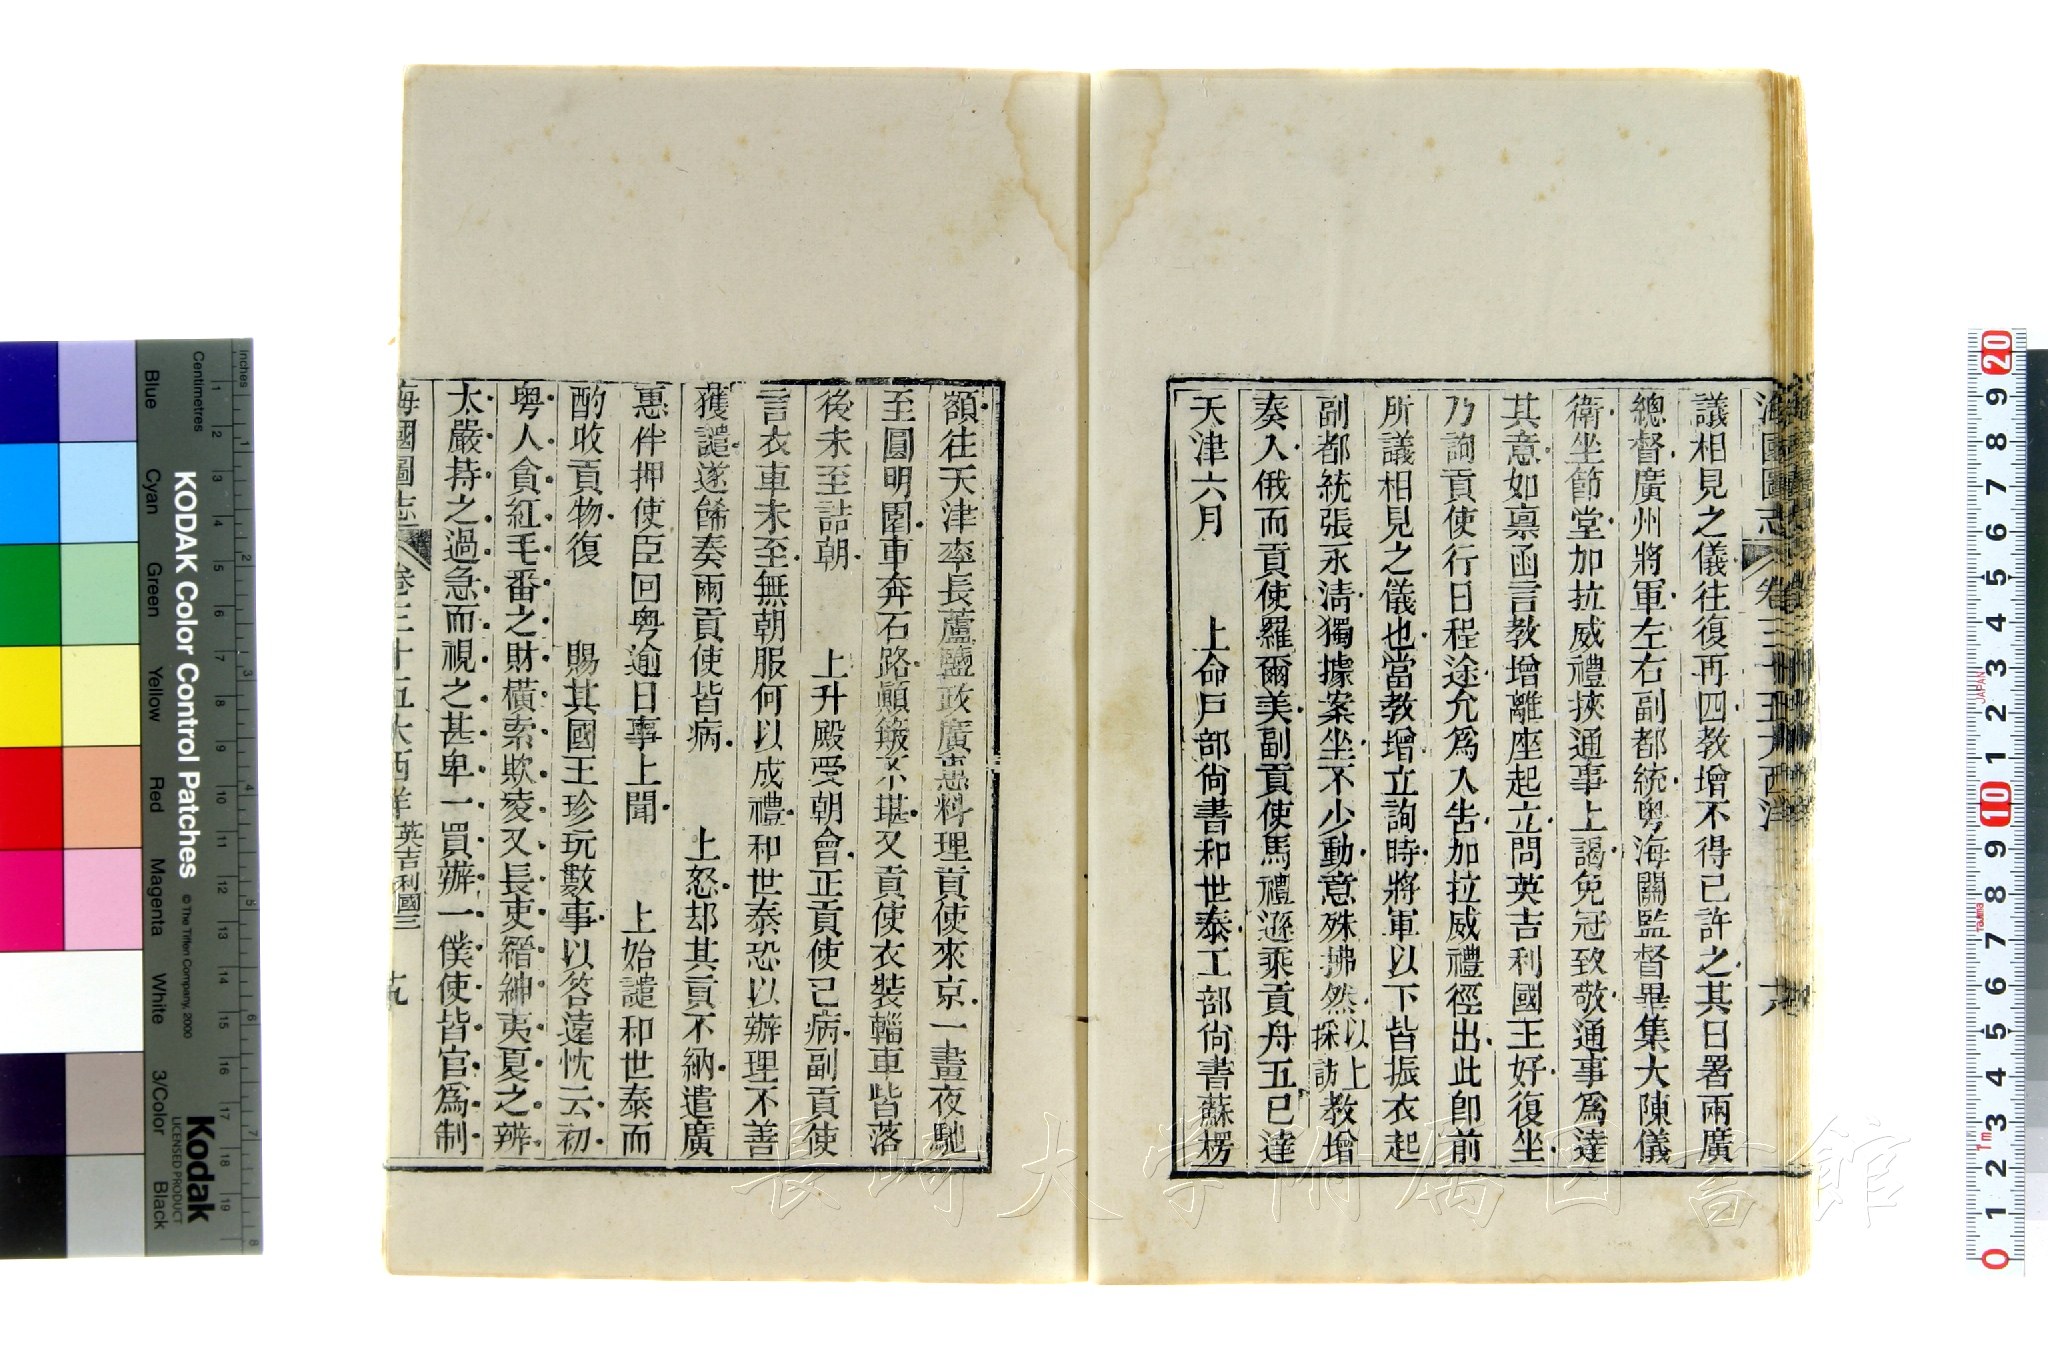 海國圖志 卷三十五大西洋 六
議相見之儀往復再四教增不得已許之其日署兩廣
總督廣州將軍左右副都統粵海關監督畢集大陳儀
衛坐節堂加拉威禮挾通事上謁免冠致敬通事爲達
其意如禀函言教增離座起立問英吉利國王好復坐
乃詢貢使行日程途允爲入告加拉威禮徑出此卽前
所議相見之儀也當教增立詢時將軍以下皆振衣起
副都統張永清獨據案坐不少動意殊拂然以上採訪教增
奏入俄而貢使羅爾美副貢使馬禮遜乘貢舟五已達
天津六月 上命戶部尙書和世泰工部尙書蘇楞
額往天津率長蘆鹽政廣惠料理貢使來京一晝夜馳
至圓明園車奔石路顚簸不堪又貢使衣裝輜車皆落
後未至詰朝 上升殿受朝會正貢使已病副貢使
言衣車未至無朝服何以成禮和世泰恐以辦理不善
獲譴遂餙奏兩貢使皆病 上怒却其貢不納遣廣
惠伴押使臣回粵逾日事上聞 上始譴和世泰而
酌收貢物復 賜其國王珍玩數事以答遠忱云初
粵人貪紅毛番之財橫索欺凌又長吏縉紳夷夏之辨
太嚴持之過急而視之甚卑一買辦一僕使皆官爲制
海國圖志 卷三十五大西洋英吉利國三 九
長崎大学附属図書館
KODAK Color Control Patches
© The Tiffen Company, 2000
Kodak
LICENSED PRODUCT
Inches
Centimetres
Blue Cyan Green Yellow Red Magenta White 3/Color Black
1 2 3 4 5 6 7 8 9 10 11 12 13 14 15 16 17 18 19
1 2 3 4 5 6 7 8
20 9 8 7 6 5 4 3 2 1 10 9 8 7 6 5 4 3 2 1 0
JAPAN